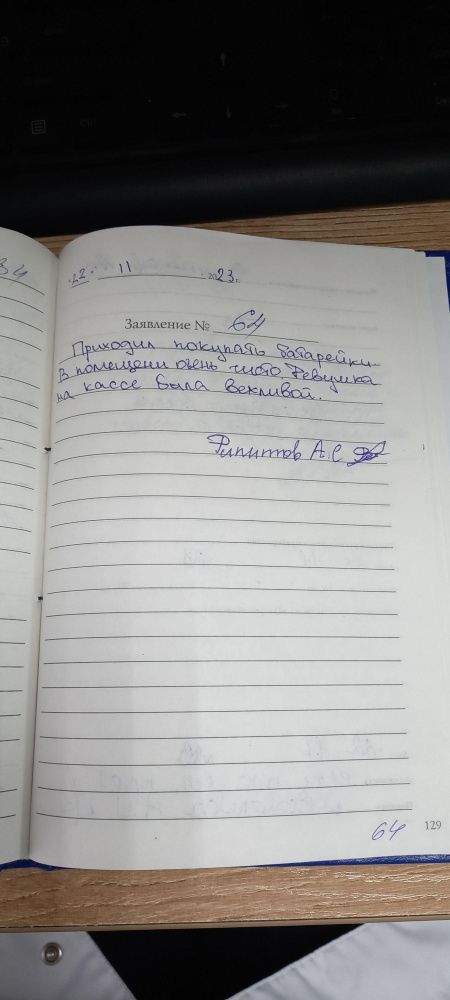 34
"22" 11 2023 г.
Заявление № 64
Приходил покупать батарейки.
В помещени очень чисто Девушка
на кассе была векливой.
А С
64
129